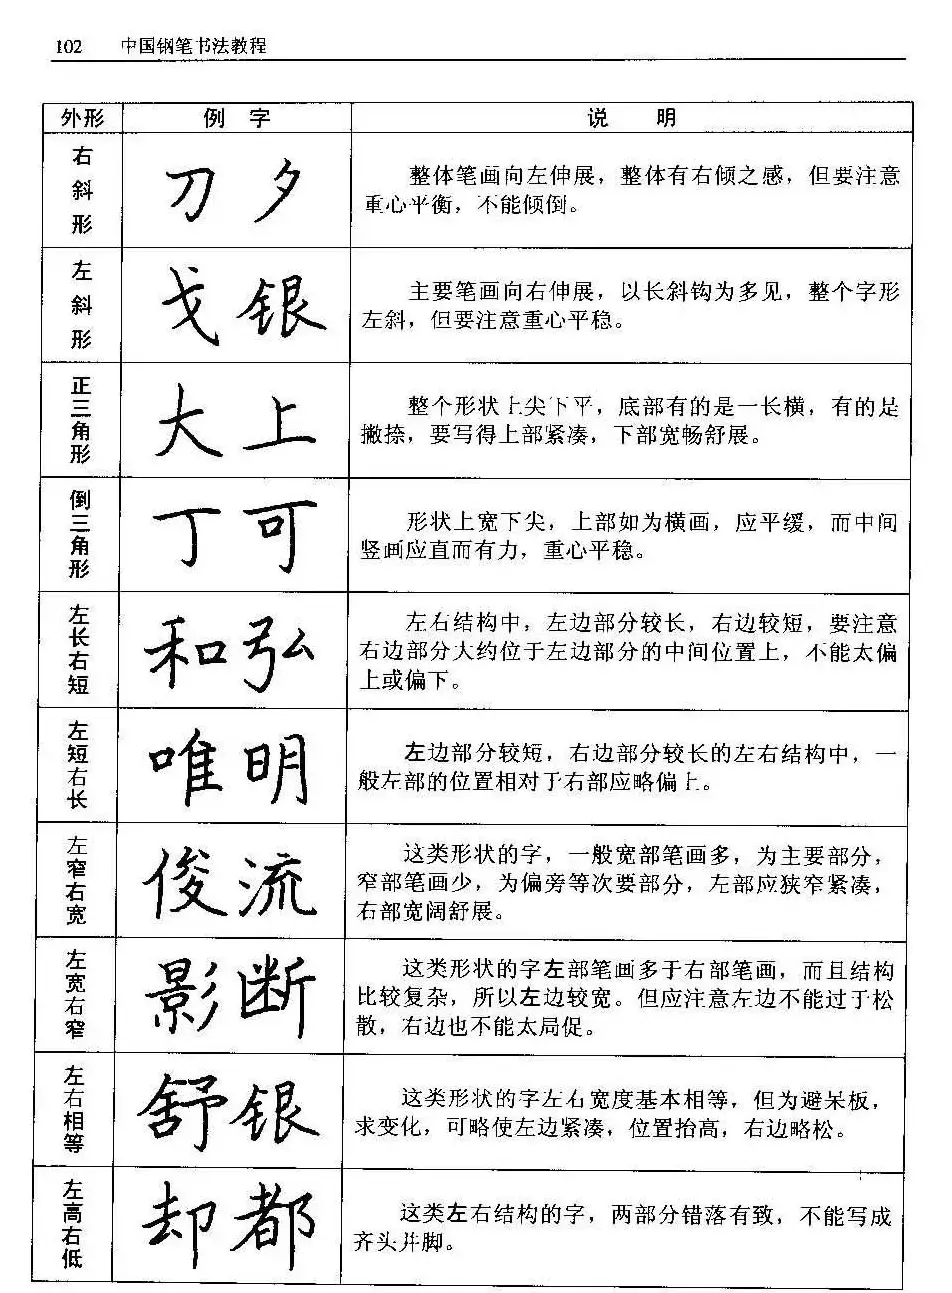 102 中国钢笔书法教程
外形 例 字 说 明
右斜形 刀 夕
整体笔画向左伸展，整体有右倾之感，但要注意
重心平衡，不能倾倒。
左斜形 戈 银
主要笔画向右伸展，以长斜钩为多见，整个字形
左斜，但要注意重心平稳。
正三角形 大 上
整个形状上尖下平，底部有的是一长横，有的是
撇捺，要写得上部紧凑，下部宽畅舒展。
倒三角形 丁 可
形状上宽下尖，上部如为横画，应平缓，而中间
竖画应直而有力，重心平稳。
左长右短 和 弘
左右结构中，左边部分较长，右边较短，要注意
右边部分大约位于左边部分的中间位置上，不能太偏
上或偏下。
左短右长 唯 明
左边部分较短，右边部分较长的左右结构中，一
般左部的位置相对于右部应略偏上。
左窄右宽 俊 流
这类形状的字，一般宽部笔画多，为主要部分，
窄部笔画少，为偏旁等次要部分，左部应狭窄紧凑，
右部宽阔舒展。
左宽右窄 影 断
这类形状的字左部笔画多于右部笔画，而且结构
比较复杂，所以左边较宽。但应注意左边不能过于松
散，右边也不能太局促。
左右相等 舒 银
这类形状的字左右宽度基本相等，但为避呆板，
求变化，可略使左边紧凑，位置抬高，右边略松。
左高右低 却 都
这类左右结构的字，两部分错落有致，不能写成
齐头并脚。